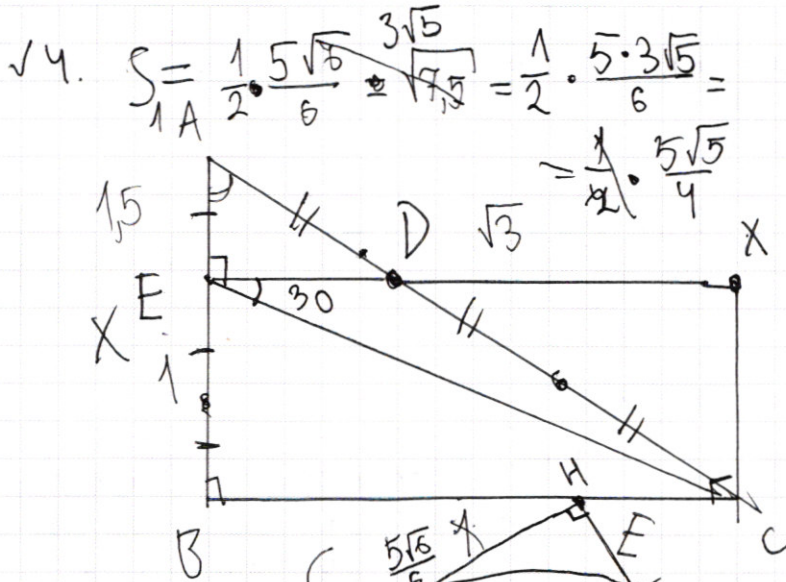 √4. S = 1/2 · 5√6/6 · √7,5 3√5 = 1/2 · 5·3√5/6 =
= 1/2 · 5√5/4
1 A
1,5
D √3 X
E 30
X 1
H
B 5√6/6 X E C